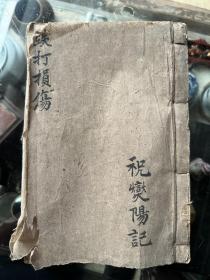 跌打損傷
祝燮陽記